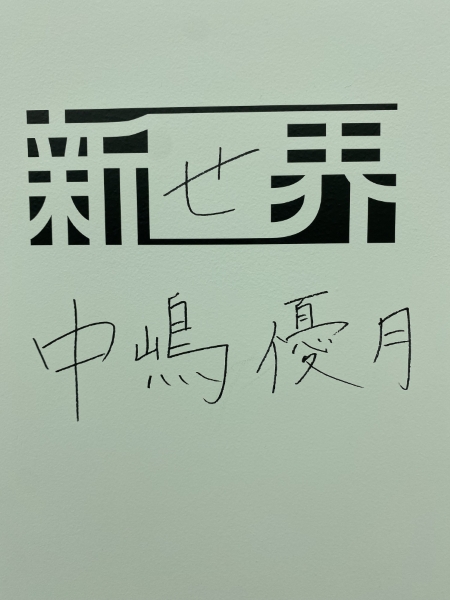 新せ界
中嶋優月